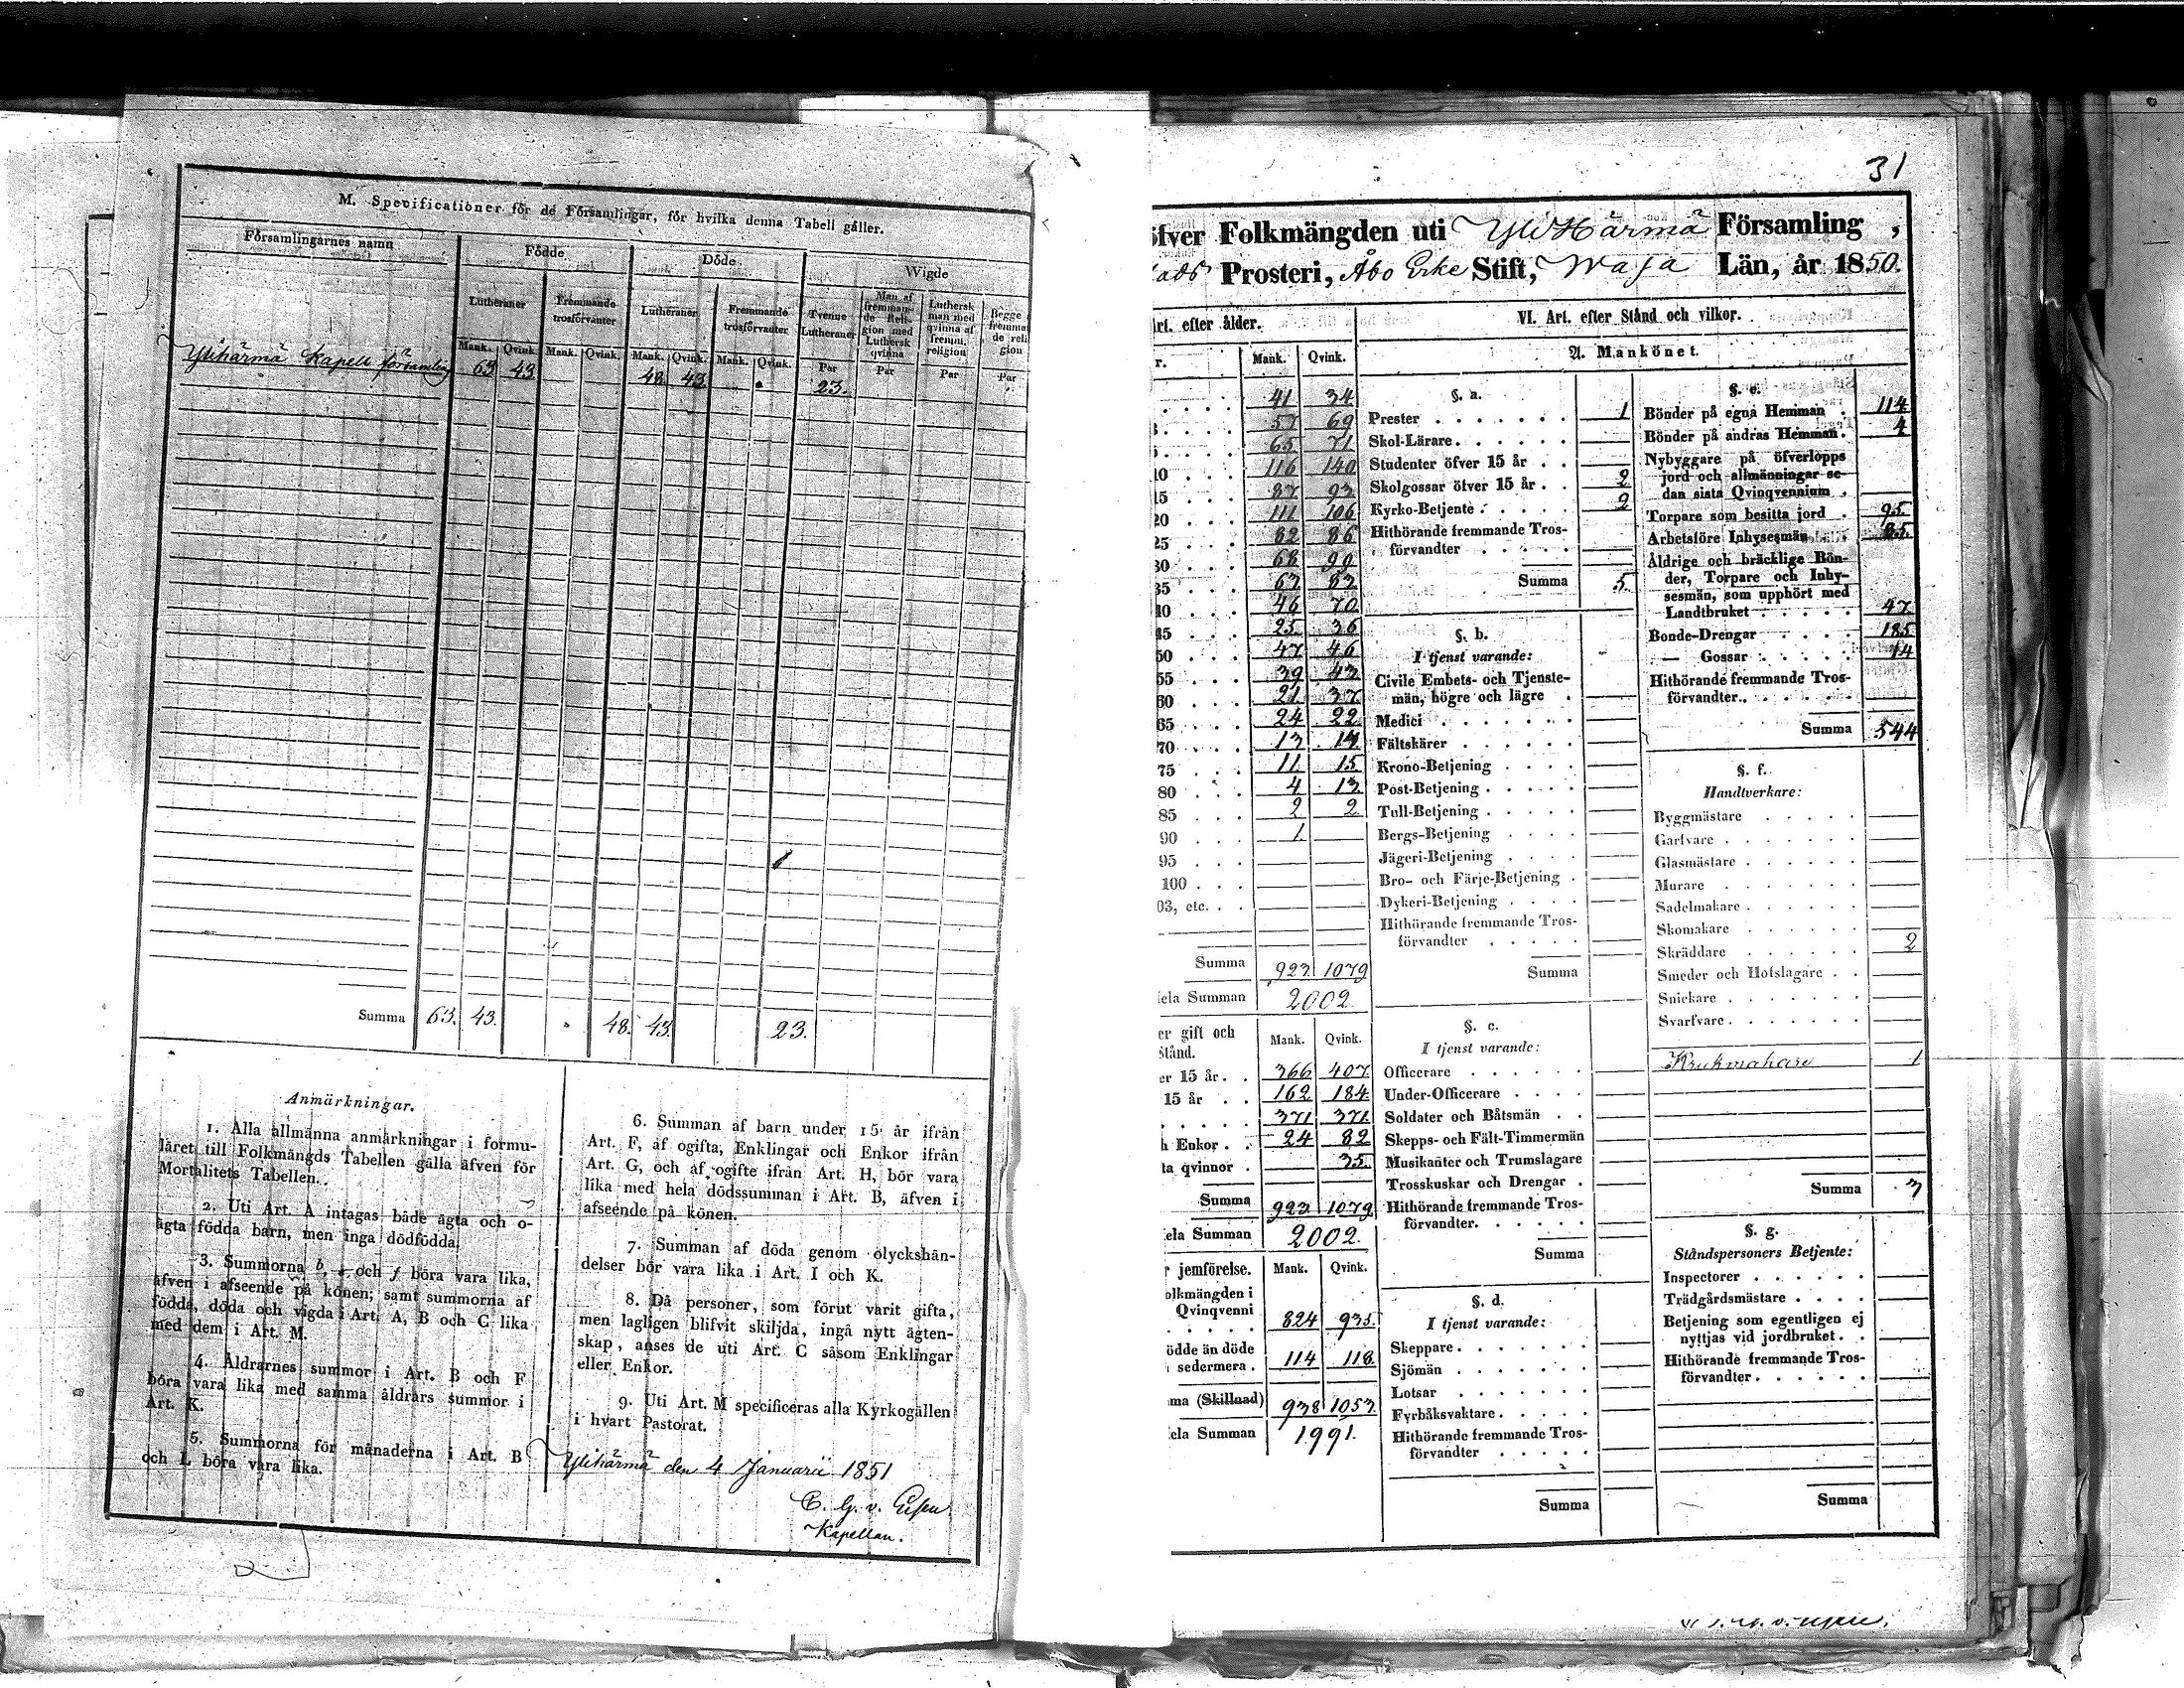 M. Specificationer för de Församlingar, för hvilka denna Tabell gäller.
Församlingarnes namn
Födde
Döde
Wigde
Lutheraner
Fremmande trosförvanter
Lutheraner
Fremmande trosförvanter
Tvenne Lutheraner
Man af fremmande Religion med Luthersk qvinna
Luthersk man med qvinna af fremm. religion
Begge fremmande religion
Mank. Qvink. Mank. Qvink. Mank. Qvink. Mank. Qvink. Par Par Par Par
Ylihärmä Kapell församling 63 43 48 43 23.
Summa 63. 43. 48. 43. 23.
Anmärkningar.
1. Alla allmänna anmärkningar i formu-
läret till Folkmängds Tabellen gälla äfven för
Mortalitets Tabellen.
2. Uti Art. A intagas både ägta och o-
ägta födda barn, men inga dödfödda.
3. Summorna b, och f böra vara lika,
äfven i afseende på könen; samt summorna af
födda, döda och vigda i Art. A, B och C lika
med dem i Art. M.
4. Åldrarnes summor i Art. B och F
böra vara lika med samma åldrars summor i
Art. K.
5. Summorna för månaderna i Art. B
och L böra vara lika.
6. Summan af barn under 15 år ifrån
Art. F, af ogifta, Enklingar och Enkor ifrån
Art. G, och af ogifte ifrån Art. H, bör vara
lika med hela dödssumman i Art. B, äfven i
afseende på könen.
7. Summan af döda genom olyckshän-
delser bör vara lika i Art. I och K.
8. Då personer, som förut varit gifta,
men lagligen blifvit skiljda, ingå nytt ägten-
skap, anses de uti Art. C såsom Enklingar
eller Enkor.
9. Uti Art. M specificeras alla Kyrkogällen
i hvart Pastorat.
Ylihärmä den 4 Januarii 1851
Kapellan.
31
öfver Folkmängden uti Yli Härmä Församling,
Prosteri, Åbo Erke Stift, Wasa Län, år 1850.
Art. efter ålder.
Mank. Qvink.
41 34
57 69
65 71
10 116 140
15 87 93
20 111 106
25 82 86
30 68 90
35 63 83
40 46 70
45 25 36
50 47 46
55 39 43
60 21 37
65 24 22
70 13 14
75 11 15
80 4 13
85 2 2
90 1
95
100
03, etc.
Summa 923 1079
ela Summan 2002
er gift och
Stånd. Mank. Qvink.
er 15 år 366 407
15 år 162 184
371 371
h Enkor 24 82
ta qvinnor 35
Summa 923 1079
ela Summan 2002.
r jemförelse. Mank. Qvink.
olkmängden i
Qvinqvenni
824 935.
ödde än döde
sedermera 114 118.
ma (Skillnad) 938 1053
ela Summan 1991.
VI. Art. efter Stånd och vilkor.
A. Mankönet.
§. a.
Prester 1
Skol-Lärare
Studenter öfver 15 år
Skolgossar öfver 15 år 2
Kyrko-Betjente 2
Hithörande fremmande Tros-
förvandter
Summa 5.
§. b.
I tjenst varande:
Civile Embets- och Tjenste-
män, högre och lägre
Medici
Fältskärer
Krono-Betjening
Post-Betjening
Tull-Betjening
Bergs-Betjening
Jägeri-Betjening
Bro- och Färje-Betjening
Dykeri-Betjening
Hithörande fremmande Tros-
förvandter
Summa
§. c.
I tjenst varande:
Officerare
Under-Officerare
Soldater och Båtsmän
Skepps- och Fält-Timmermän
Musikanter och Trumslagare
Trosskuskar och Drengar
Hithörande fremmande Tros-
förvandter
Summa
§. d.
I tjenst varande:
Skeppare
Sjömän
Lotsar
Fyrbåksvaktare
Hithörande fremmande Tros-
förvandter
Summa
§. e.
Bönder på egna Hemman 114
Bönder på andras Hemman 4
Nybyggare på öfverlopps
jord och allmänningar se-
dan sista Qvinqvennium
Torpare som besitta jord 95
Arbetsföre Inhysesmän 85.
Åldrige och bräcklige Bön-
der, Torpare och Inhy-
sesmän, som upphört med
Landtbruket 47
Bonde-Drengar 185
— Gossar 14
Hithörande fremmande Tros-
förvandter
Summa 544
§. f.
Handtverkare:
Byggmästare
Garfvare
Glasmästare
Murare
Sadelmakare
Skomakare
Skräddare 2
Smeder och Hofslagare
Snickare
Svarfvare
Krukmakare 1
Summa 3
§. g.
Ståndspersoners Betjente:
Inspectorer
Trädgårdsmästare
Betjening som egentligen ej
nyttjas vid jordbruket
Hithörande fremmande Tros-
förvandter
Summa